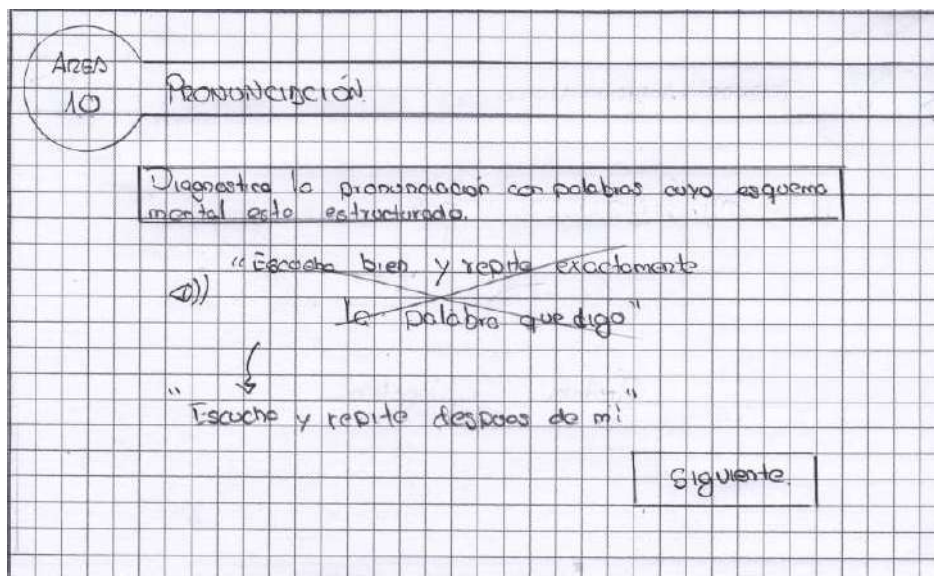 AREA
10
PRONUNCIACIÓN.
Diagnostica la pronunciación con palabras cuyo esquema
mental esta estructurado.
"Escucha bien, y repite exactamente
la palabra que digo"
"Escucha y repite despues de mi"
Siguiente.